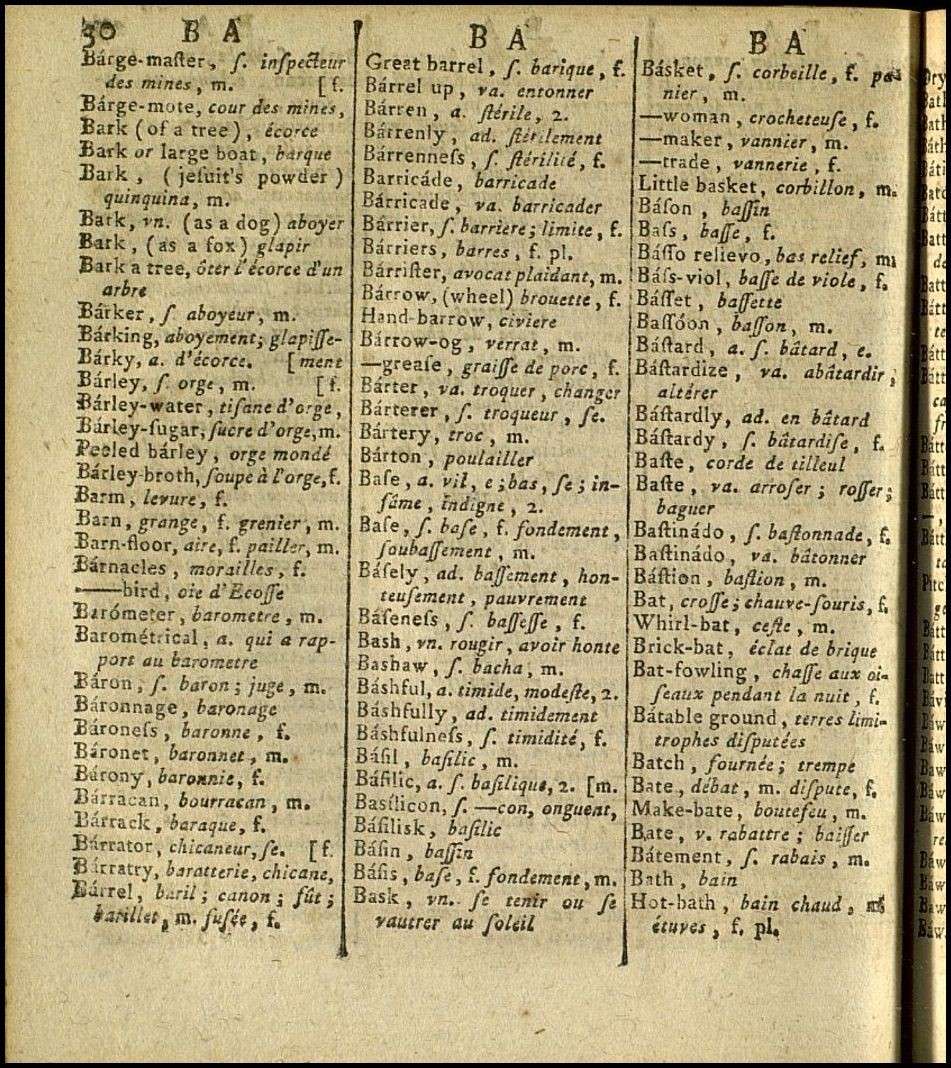 30 B A
Bárge-maſter, ſ. inſpecteur
des mines, m. [f.
Bárge-mote, cour des mines,
Bark (of a tree), écorce
Bark or large boat, barque
Bark, (jeſuit's powder)
quinquina, m.
Bark, vn. (as a dog) aboyer
Bark, (as a fox) glapir
Bark a tree, ôter l'écorce d'un
arbre
Bárker, ſ aboyeur, m.
Bárking, aboyement; glapiſſe-
Bárky, a. d'écorce. [ment
Bárley, ſ. orge, m. [f.
Bárley-water, tiſane d'orge,
Bárley-ſugar, ſucre d'orge, m.
Peeled bárley, orge mondé
Bárley-broth, ſoupe à l'orge, f.
Barm, levure, f.
Barn, grange, f. grenier, m.
Barn-floor, aire, f. pailler, m.
Bárnacles, morailles, f.
——bird, oie d'Ecoſſe
Barómeter, barometre, m.
Barométrical, a. qui a rap-
port au barometre
Báron, ſ. baron; juge, m.
Báronnage, baronage
Bároneſs, baronne, f.
Báronet, baronnet, m.
Bárony, baronnie, f.
Bárracan, bourracan, m.
Bárrack, baraque, f.
Bárrator, chicaneur, ſe. [f.
Bárratry, baratterie, chicane,
Bárrel, baril; canon; fût;
barillet, m. fuſée, f.
B A
Great barrel, ſ. barique, f.
Bárrel up, va. entonner
Bárren, a. ſtérile, 2.
Bárrenly, ad. ſtérilement
Bárrenneſs, ſ. ſtérilité, f.
Barricáde, barricade
Bárricade, va. barricader
Bárrier, ſ. barriere; limite, f.
Bárriers, barres, f. pl.
Bárriſter, avocat plaidant, m.
Bárrow, (wheel) brouette, f.
Hand-barrow, civiere
Bárrow-og, verrat, m.
—greaſe, graiſſe de porc, f.
Bárter, va. troquer, changer
Bárterer, ſ. troqueur, ſe.
Bártery, troc, m.
Bárton, poulailler
Baſe, a. vil, e; bas, ſe; in-
fâme, indigne, 2.
Baſe, ſ. baſe, f. fondement,
ſoubaſſement, m.
Báſely, ad. baſſement, hon-
teuſement, pauvrement
Báſeneſs, ſ. baſſeſſe, f.
Bash, vn. rougir, avoir honte
Bashaw, ſ. bacha, m.
Báshful, a. timide, modeſte, 2.
Báshfully, ad. timidement
Báshfulneſs, ſ. timidité, f.
Báſil, baſilic, m.
Báſilic, a. ſ. baſilique, 2. [m.
Basílicon, ſ. —con, onguent,
Báſiliſk, baſilic
Báſin, baſſin
Báſis, baſe, f. fondement, m.
Bask, vn. ſe tenir ou ſe
vautrer au ſoleil
B A
Básket, ſ. corbeille, f. pa-
nier, m.
—woman, crocheteuſe, f.
—maker, vannier, m.
—trade, vannerie, f.
Little basket, corbillon, m.
Báſon, baſſin
Baſs, baſſe, f.
Báſſo relievo, bas relief, m.
Báſs-viol, baſſe de viole, f.
Báſſet, baſſette
Baſſóon, baſſon, m.
Báſtard, a. ſ. bâtard, e.
Báſtardize, va. abâtardir;
altérer
Báſtardly, ad. en bâtard
Báſtardy, ſ. bâtardiſe, f.
Baſte, corde de tilleul
Baſte, va. arroſer; roſſer;
baguer
Baſtinádo, ſ. baſtonnade, f.
Baſtinádo, va. bâtonner
Báſtion, baſtion, m.
Bat, croſſe; chauve-ſouris, f.
Whirl-bat, ceſte, m.
Brick-bat, éclat de brique
Bat-fowling, chaſſe aux oi-
ſeaux pendant la nuit, f.
Bátable ground, terres limi-
trophes diſputées
Batch, fournée; trempe
Bate, débat, m. diſpute, f.
Make-bate, boutefeu, m.
Bate, v. rabattre; baiſſer
Bátement, ſ. rabais, m.
Bath, bain
Hot-bath, bain chaud,
étuves, f. pl.